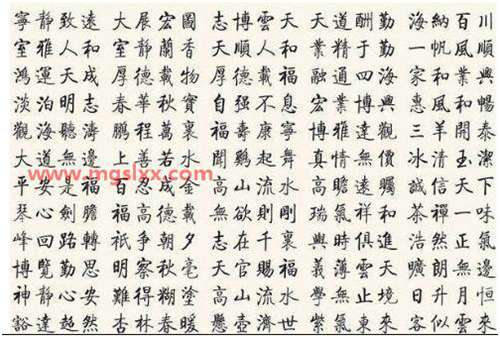 寧靜致遠 大展宏圖 志博雲天 天道酬勤 海納百川
室雅人和 室靜蘭香 大順人和 業精于勤 一帆風順
鴻運天成 厚德載物 厚德載福 融通四海 家和業興
淡泊明志 春華秋實 自强不息 宏 興 惠風和暢
觀海聽濤 鵬程萬裏 福壽康寧 博雅達觀 三羊開泰
大道無邊 上善若水 聞鷄起舞 真情無 冰清玉潔
平安是福 百忍成金 高山流水 高瞻遠矚 誠信天下
琴心劍膽 福 高德載 無欲則剛 瑞氣祥和 茶禪一味
峰回路轉 祇爭朝夕 志在千裏 與時俱進 浩然正氣
博覽勤思 明察秋毫 天官賜福 義薄雲天 曠朗無邊
神靜心安 難得糊塗 高山流水 學無止境 日升月恒
豁達超然 杏林春暖 懸壺濟世 紫氣東來 客似雲來
www.mgslxx.com